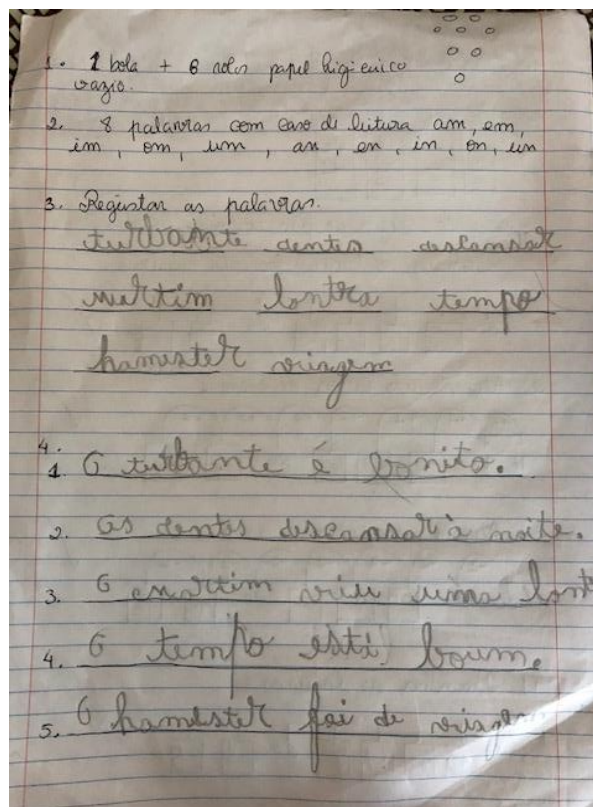 1. 1 bola + 6 rolos papel higienico
vazio.
2. 8 palavras com caso de leitura am, em,
im, om, um, an, en, in, on, un
3. Registar as palavras.
turbante dentes descansar
martim lontra tempo
hamester viagem
4.
1. O turbante é bonito.
2. Os dentes descansar à noite.
3. O martim viu uma lont
4. O tempo está boum.
5. O hamester foi de viagem